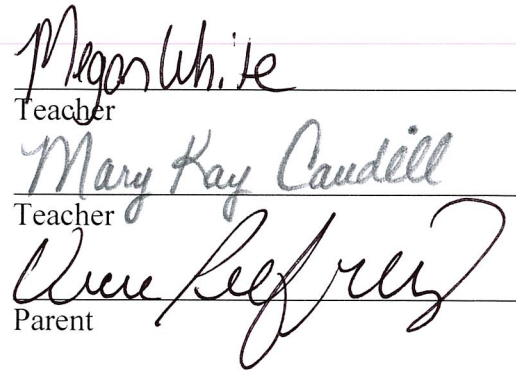 Megan White
Teacher
Mary Kay Caudill
Teacher
Parent